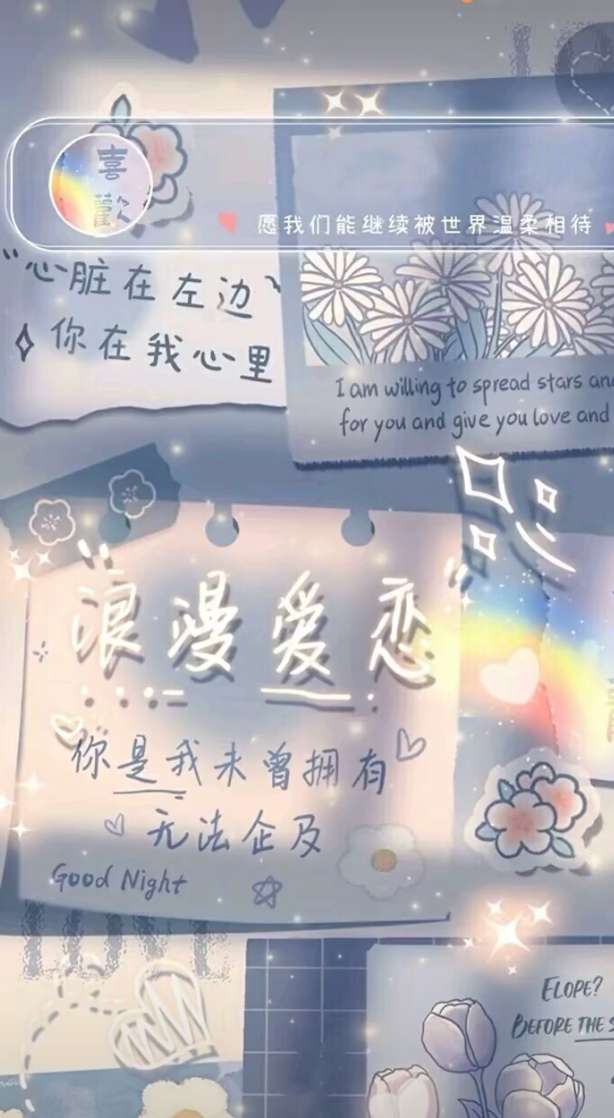 喜
歡
愿我们能继续被世界温柔相待
"心脏在左边
你在我心里
I am willing to spread stars and
for you and give you love and
"浪漫爱恋"
你是我未曾拥有
无法企及
Good Night
LOVE
ELOPE?
BEFORE THE S